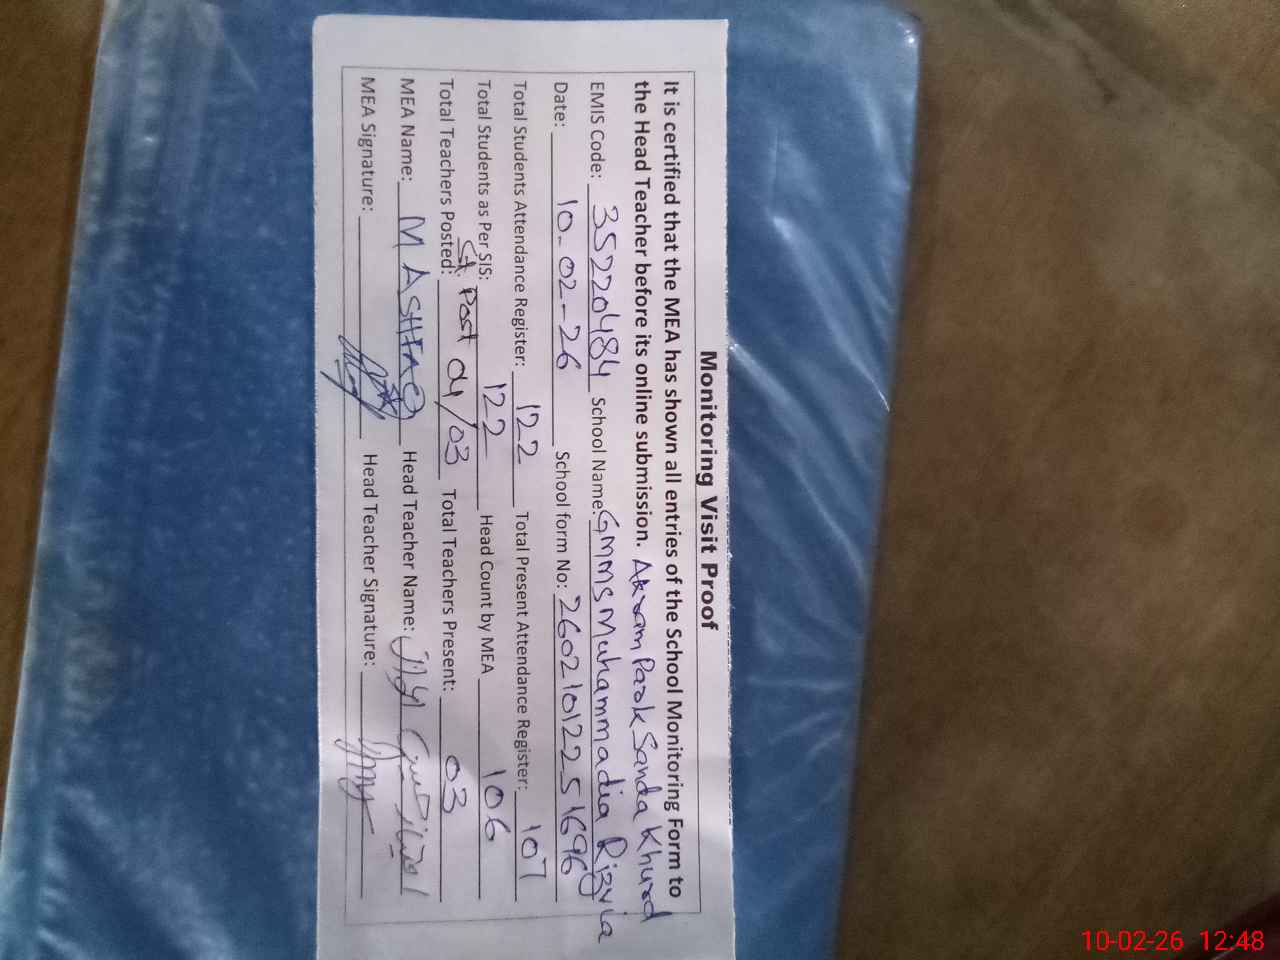 Monitoring Visit Proof
It is certified that the MEA has shown all entries of the School Monitoring Form to
the Head Teacher before its online submission. Akram Park Sanda Khurd
EMIS Code: 35220484 School Name: GMMS Muhammadia Rizvia
Date: 10-02-26 School form No: 26021012251696
Total Students Attendance Register: 122 Total Present Attendance Register: 107
Total Students as Per SIS: 122 Head Count by MEA 106
Total Teachers Posted: Post 04/03 Total Teachers Present: 03
MEA Name: M ASHFAQ Head Teacher Name:
MEA Signature: Head Teacher Signature:
10-02-26 12:48